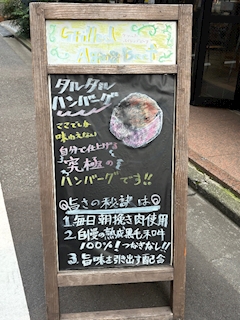 タルタル
ハンバーグ
ココでしか
味わえない
自分で仕上げる
究極の
ハンバーグです!!
旨さの秘訣は
1.毎日朝挽き肉使用
2.自慢の熟成黒毛和牛
100%!つなぎなし!!
3.旨味を引出す配合